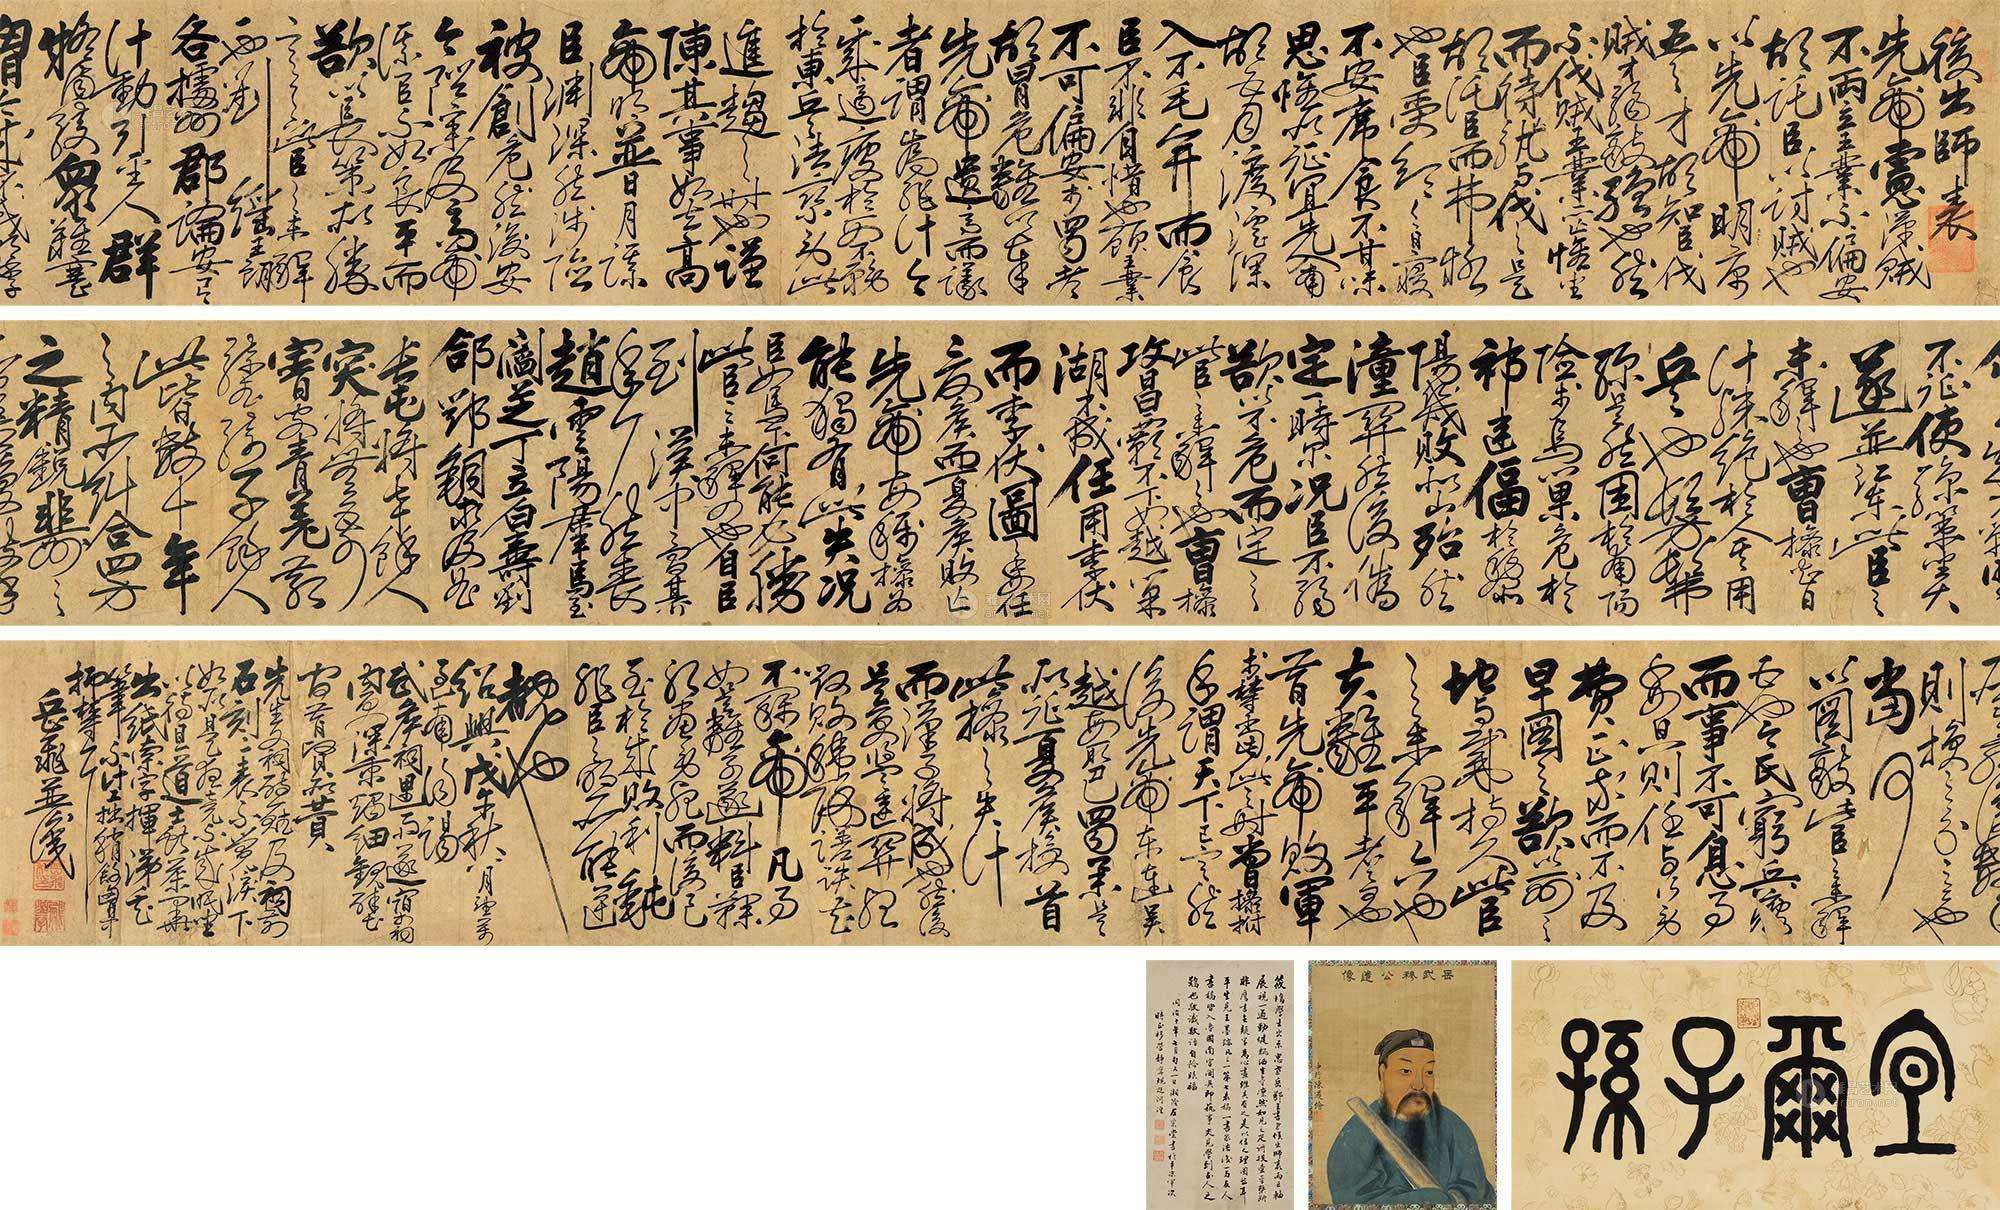 後出師表
先帝慮漢賊
不兩立王業不偏安
故託臣以討賊也
以先帝明
才故知臣伐
賊才弱敵強也然
不伐賊王業亦亡惟坐
而待亡孰與伐之是
故託臣而弗疑
也臣受命之日寢
不安席食不甘味
思惟北征宜先入南
故五月渡瀘深
入不毛并日而食
臣非不自惜也顧王業
不可偏安於蜀都
故冒危難以奉
先帝遺意而議
者謂為非計今
賊適疲於西又務
於東兵法乘勞此
進趨之時也謹
陳其事如左高
帝明並日月謀
臣淵深然涉險
被創危然後安
今陛下未及高帝
謀臣不如良平而
欲以長策取勝
此臣之未解
一也劉繇王朗
各據州郡論安言
計動引聖人群
疑滿腹眾難塞
胸今歲不戰明年
不征使孫策坐大
遂並江東此臣之
未解二也曹操智
計殊絕於人其用
兵也髣髴
孫吳然困於南陽
險於烏巢危於
祁連偪於黎
陽幾敗北山殆死
潼關然後偽
定一時耳況臣才弱
欲以不危而定之
此臣之未解三也曹操
五攻昌霸不下四越巢
湖不成任用李伏
而李伏圖之委任
夏侯而夏侯敗亡
先帝每稱操為
能猶有此失況
臣駑下何能必勝
此臣之未解四也自臣
到漢中中間朞
年耳然喪
趙雲陽羣馬玉
閻芝丁立白壽劉
郃鄧銅等及曲
長屯將七十餘人
突將無前
賨叟青羌散
騎武騎一千餘人
此皆數十年
之內所糾合四方
之精銳非一州之
則損三分之二也
當何
以圖敵此臣之未解
五也今民窮兵疲
而事不可息事
不可息則住與行勞
費正等而不及
早圖之欲以一州之
地與賊持久此臣
之未解六也
夫難平者事也
昔先帝敗軍
於楚當此之時曹操拊
手謂天下已定然
後先帝東連吳
越西取巴蜀舉兵
北征夏侯授首
此操之失計
而漢事將成也然後
吳更違盟關羽
毀敗秭歸蹉跌曹
丕稱帝凡事
如是難可逆料臣鞠
躬盡力死而後已
至於成敗利鈍
非臣之明所能逆
覩也
紹興戊午秋八月望前
過南陽謁
武侯祠遇雨遂宿於祠
內更深秉燭細觀壁間
昔賢所贊
先生文詞詩賦及祠前
石刻二表不覺淚下
如雨是夜竟不成眠坐
以待旦道士獻茶畢
出紙索字揮涕走
筆不計工拙稍舒胸中
抑鬱耳
岳飛並識
宜爾子孫
岳武穆公遺像